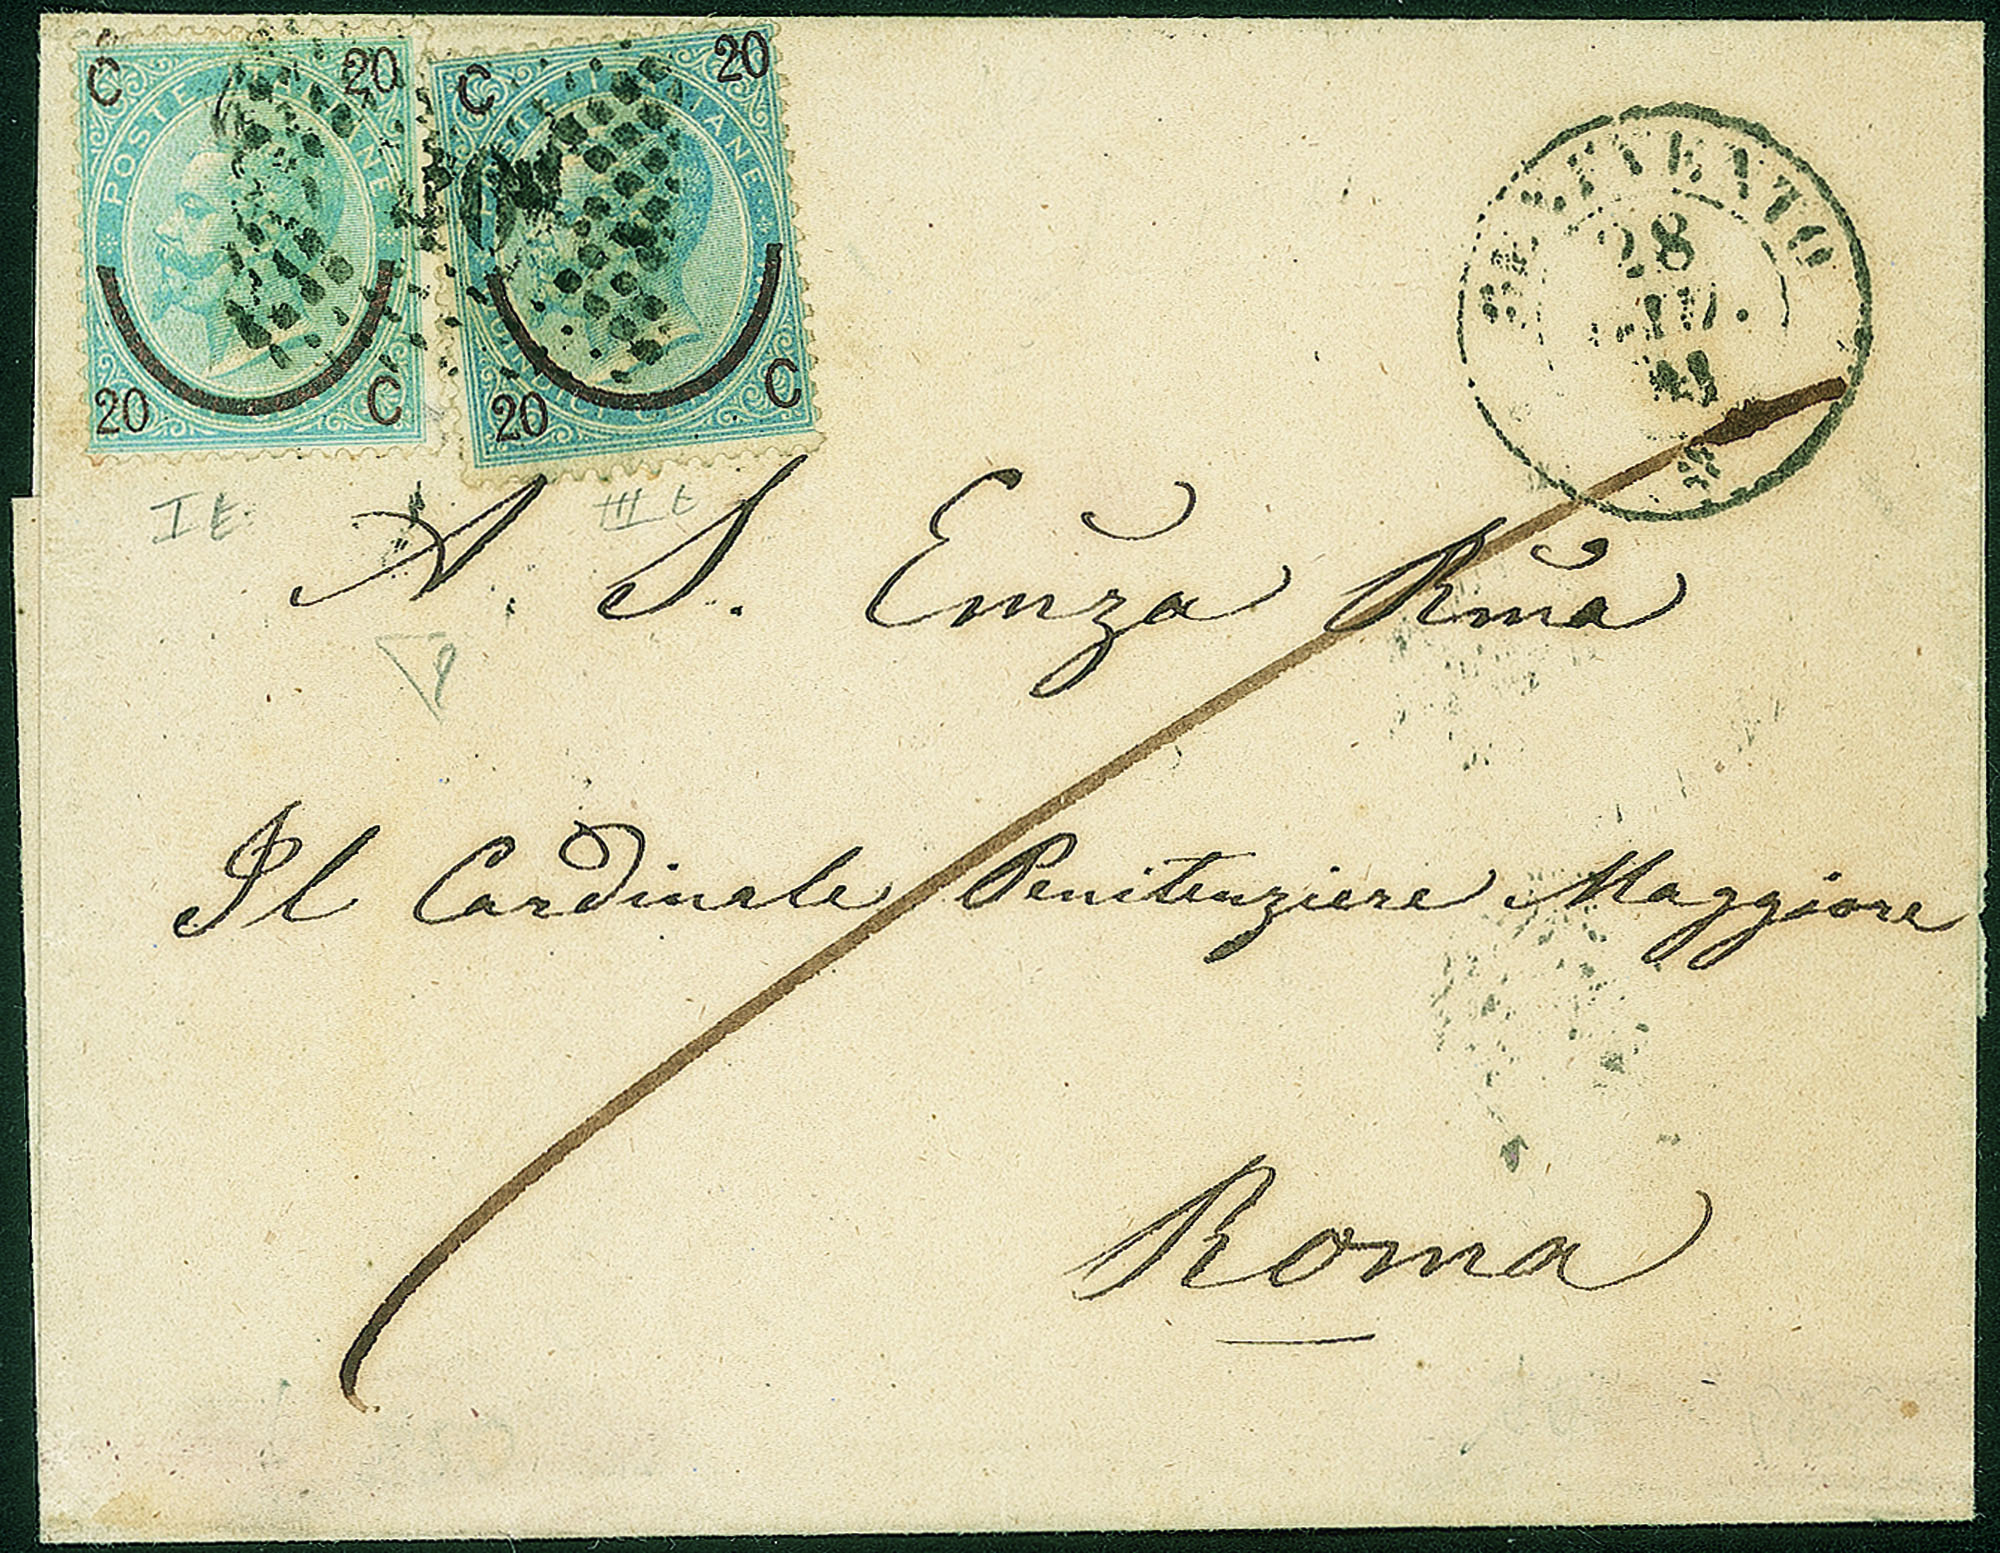 C 20
POSTE ITALIANE
20 C
C 20
POSTE ITALIANE
20 C
BENEVENTO
28
I t
III t
A. S. Emza Rma
Il Cardinale Penitenziere Maggiore
Roma